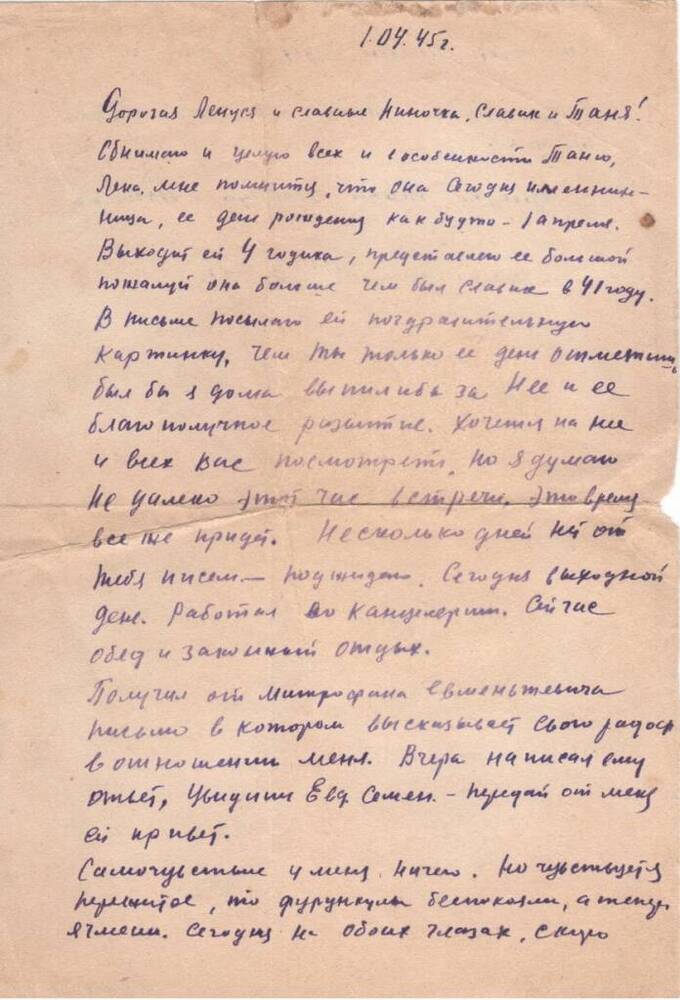 1.04.45г.
Дорогая Ленуся и славные Ниночка, Славик и Таня!
Обнимаю и целую всех и в особенности Таню,
Лена, мне помнится, что она сегодня именнин-
ница, ее день рождения как будто – 1 апреля.
Выходит ей 4 годика, представляю ее большой
пожалуй она больше чем был Славик в 41 году.
В письме посылаю ей поздравительную
картинку, чем ты только ее день отметишь,
был бы я дома выпили бы за Нее и ее
благополучное развитие. Хочется на нее
и всех Вас посмотреть, но я думаю
не далеко этот час встречи. Это время
все же придет. Несколько дней нет от
тебя писем – поджидаю. Сегодня выходной
день. Работал в канцелярии. Сейчас
обед и законный отдых.
Получил от Митрофана Евментьевича
письмо в котором высказывает свою радость
в отношении меня. Вчера написал ему
ответ, Увидишь Евд. Семен. – передай от меня
ей привет.
Самочувствие у меня ничего. Но чувствуется
пережитое, то фурункулы беспокоили, а теперь
ячмени. Сегодня на обоих глазах, скоро